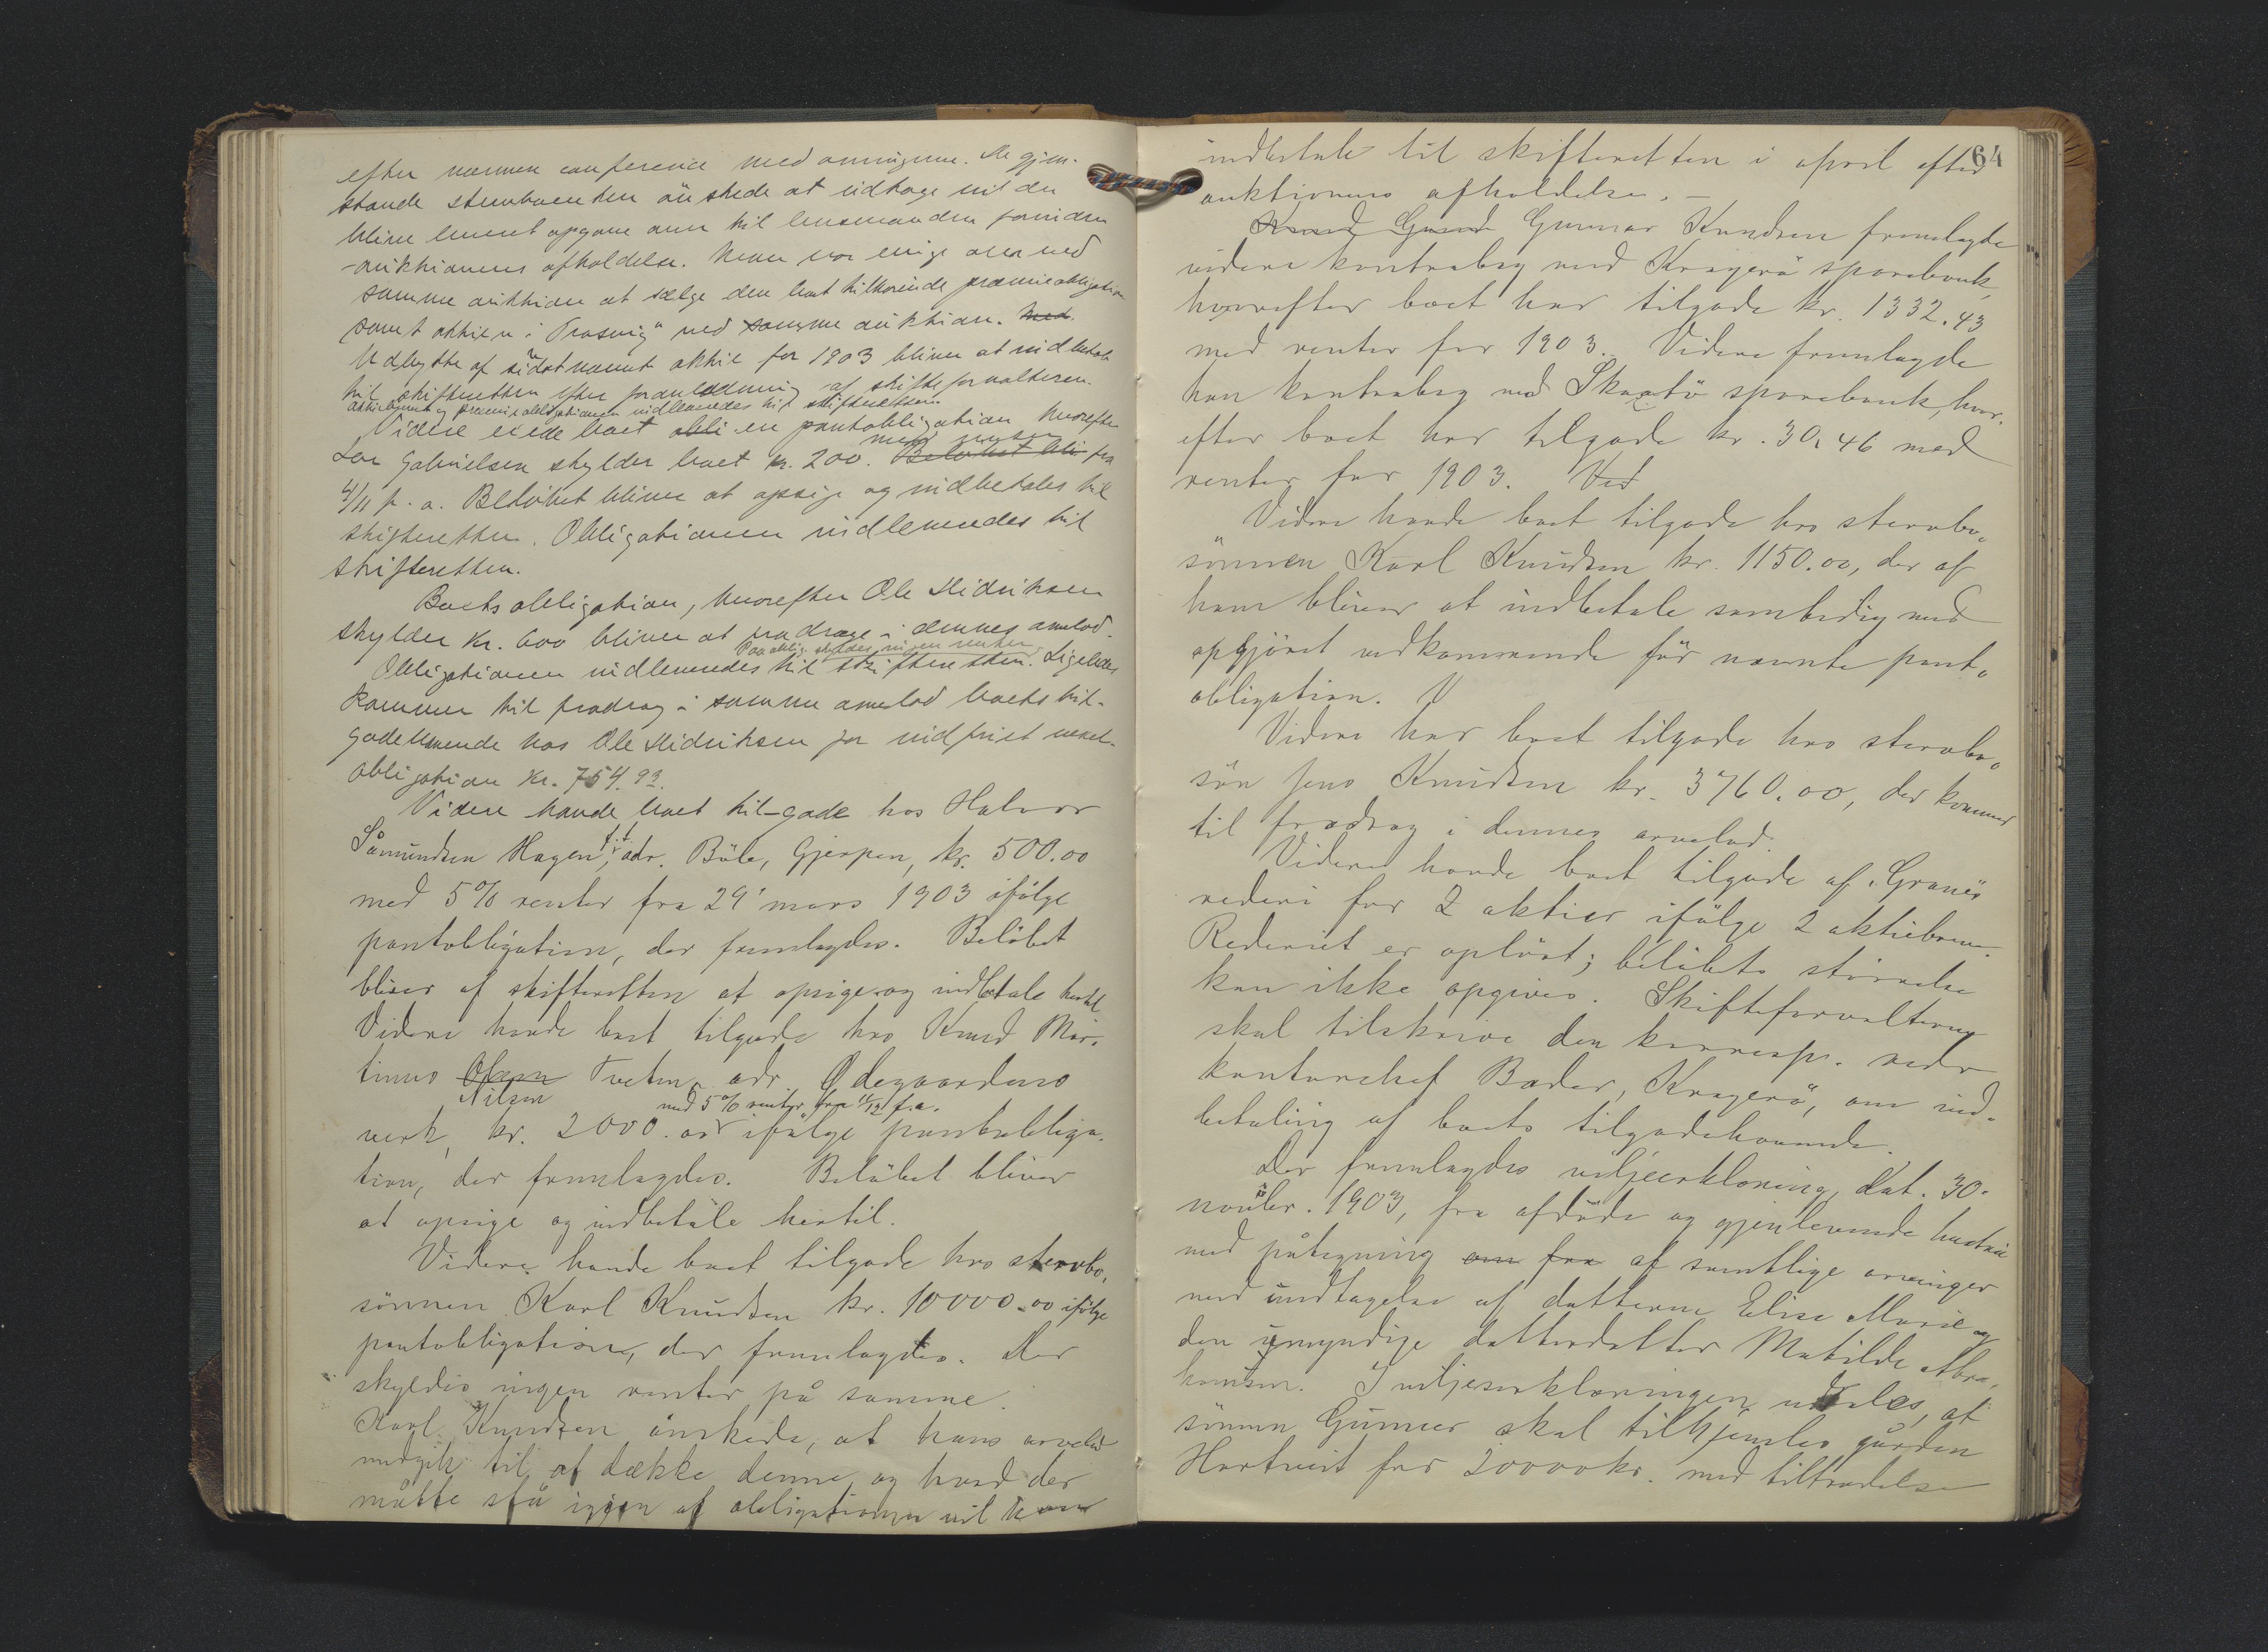 efter nærmere conference med arvingerne. De gjen-
stande stervboenken önskede at udtage vil der
blive leveret opgave over til lensmanden forinden
-auktionens afholdelse. Man var enige om ved
samme auktion at sælge den boet tilhörende præmieobligation
samt aktien i "Trosvig" ved samme auktion. Med
Udbytte af sidstnævnt aktie for 1903 bliver at indbetale
til skifteretten efter foranledning af skifteforvalteren.
Aktiebrevet og præmieobligationen indleveredes til skifteretten.
Videre eiede boet obli en pantobligation hvorefter
Lor Gabrielsen skylder boet kr. 200. Beløbet bliv med renter fra
4/11 f. a. Beløbet bliver at opsige og indbetales til
skifteretten. Obligationen indleveredes til
skifteretten.
Boets obligation, hvorefter Ole Didriksen
skylder kr. 600 bliver at fradrage i dennes arvelod.
Paa oblig. skyldes ingen renter
Obligationen indleveredes til skifteretten. Ligeledes
kommer til fradrag i samme arvelod boets til-
godehavende hos Ole Didriksen for indfriet vexel-
obligation kr. 754.93.
Videre havde boet til-gode hos Halvor
Såmundsen Hagen, adr. Böle, Gjerpen, kr. 500.00
med 5% renter fra 29' mars 1903 ifölge
pantobligation, der fremlagdes. Belöbet
bliver af skifteretten at opsige og indbetale hertil
Videre havde boet tilgode hos Knud Mar-
tinus Olsen Nilsen Tveten, adr. Ødegaardens
med 5% renter fra 11/12 f.a.
verk, kr. 2000.00 ifölge pantobliga-
tion, der fremlagdes. Belöbet bliver
at opsige og indbetale hertil.
Videre havde boet tilgode hos stervbo-
sönnen Karl Knudsen kr. 10000.00 ifölge
pantobligation, der fremlagdes. Der
skyldes ingen renter på samme.
Karl Knudsen önskede, at hans arvelod
medgik til at dække denne, og hvad der
måtte stå igjen af obligationen vil han
64
indbetale til skifteretten i april efter
auktionens afholdelse. -
Knud Gund Gunnar Knudsen fremlagde
videre kontrabog med Kragerö sparebank,
hvorefter boet har tilgode kr. 1332.43
med renter for 1903. Videre fremlagde
han kontrabog med Skåtö sparebank, hvor-
efter boet har tilgode kr. 30.46 med
renter for 1903. Ved
Videre havde boet tilgode hos stervbo-
sönnen Karl Knudsen kr. 1150.00, der af
ham bliver at indbetale samtidig med
opgjöret vedkommende för nævnte pant-
obligation.
Videre har boet tilgode hos stervbo-
sön Jens Knudsen kr. 3760.00, der kommer
til fradrag i dennes arvelod.
Videre havde boet tilgode af "Granös
rederi for 2 aktier ifölge 2 aktiebreve
Rederiet er oplöst; belöbets störrelse
kan ikke opgives. Skifteforvalteren
skal tilskrive den korresp. reder
kontorchef Bader, Kragerö, om ind-
betaling af boets tilgodehavende.
Der fremlagdes viljeerklæring, dat. 30.
novbr. 1903, fra afdöde og gjenlevende hustru
med påtegning om fra af samtlige arvinger
med undtagelse af datteren Elise Marie og
den umyndige datterdatter Matilde Abra-
hamsen. I viljeserklæringen udtales, at
sönnen Gunner skal tilhjemles gården
Hartveit for 20000 kr. med tiltrædelse